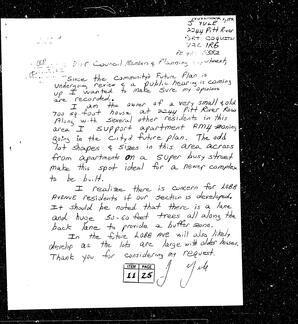 J YULE
2244 Pitt River
PORT COQUITLAM
V3C 1R6
Dear Council Members & Planning Department,
Since the Community Future Plan is
undergoing review & a public hearing is coming
up I wanted to make sure my opinions
are recorded.
I am the owner of a very small & old
700 sq. foot house at 2244 Pitt River Road
Along with several other residents in this
area I support apartment zoning
going in the City's future plan. The odd
lot shapes & sizes in this area across
from apartments on a super busy street
make this spot ideal for a newer complex
to be built.
I realize there is concern for LOBB
AVENUE residents if our section is developed.
It should be noted that there is a lane
and huge 50-60 feet trees all along the
back lane to provide a buffer zone.
In the future LOBB AVE will also likely
develop as the lots are large with older houses.
Thank you for considering my request.
J Yule
ITEM PAGE
11 25